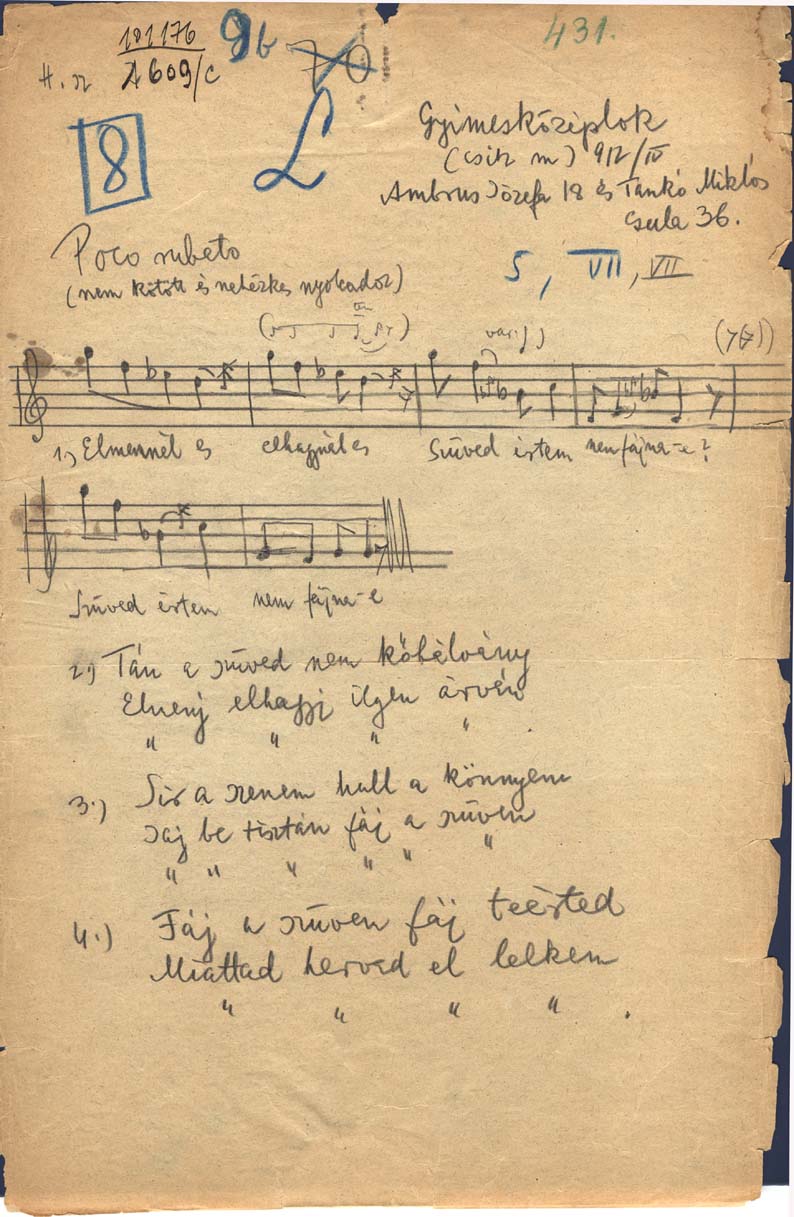 101176
A 609/c
9b
70
431.
8
L
Gyimesközéplok
(csik m) 912/IV
Ambrus Józefa 18 és Tankó Miklós
Csula 36.
Poco rubato
(nem kötött és nehézkes
5, VII, VII
var:
1.) Elmennél es elhagynál es Szüved értem nem fájna-e?
Szüved értem nem fájna-e
2.) Tán a szüved nem kőbálvány
Elmenj elhagyj ilyen árván
" " " " .
3.) Sir a szemem hull a könnyem
Jaj be tisztán fáj a szüven
" " " " " "
4.) Fáj a szüven fáj teérted
Miattad hervad el lelkem
" " " " .